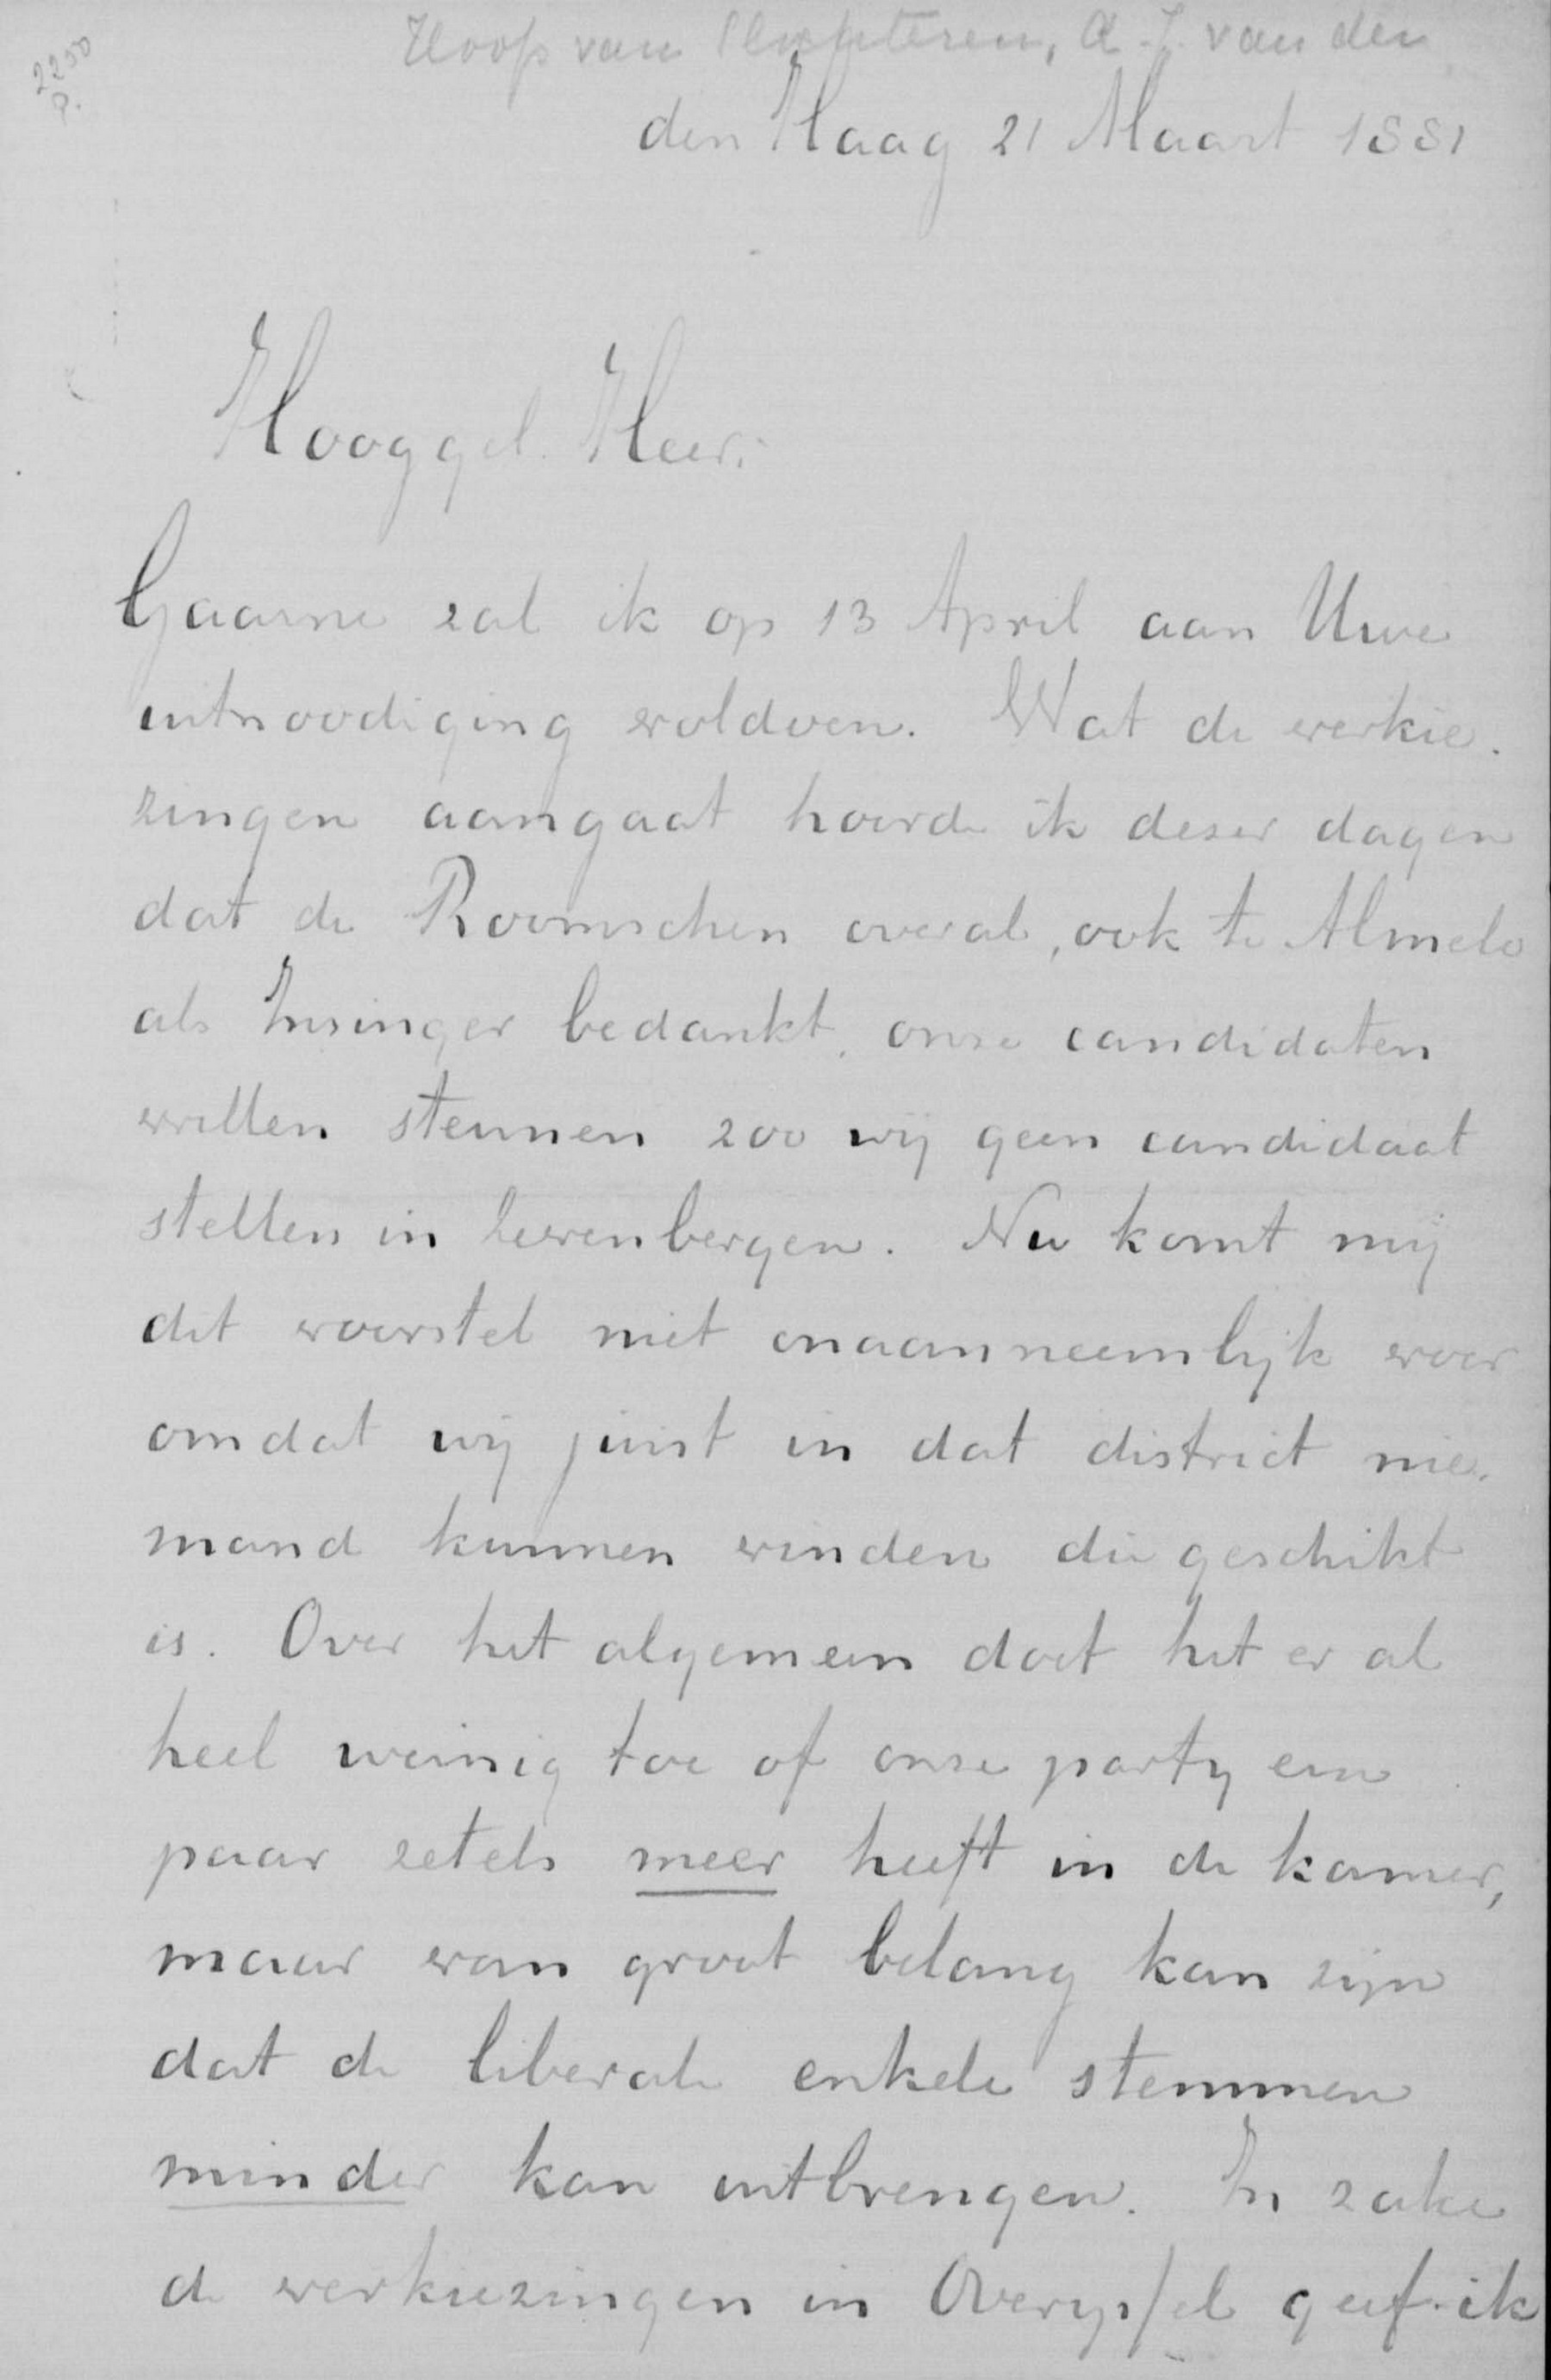 2250
P.
Hoop van Slochteren, A. J. van der
den Haag 21 Maart 1881
Hooggel. Heer.
Gaarne zal ik op 13 April aan Uwe
uitnoodiging voldoen. Wat de verkie-
zingen aangaat hoorde ik dezer dagen
dat de Roomschen overal, ook te Almelo
als Insinger bedankt, onze candidaten
willen steunen zoo wij geen candidaat
stellen in Zevenbergen. Nu komt mij
dit voorstel niet onaanneemlijk voor
omdat wij juist in dat district nie-
mand kunnen vinden die geschikt
is. Over het algemeen doet het er al
heel weinig toe of onze party een
paar zetels meer heeft in de kamer,
maar van groot belang kan zijn
dat de liberale enkele stemmen
minder kan uitbrengen. In zake
de verkiezingen in Overyssel geef ik